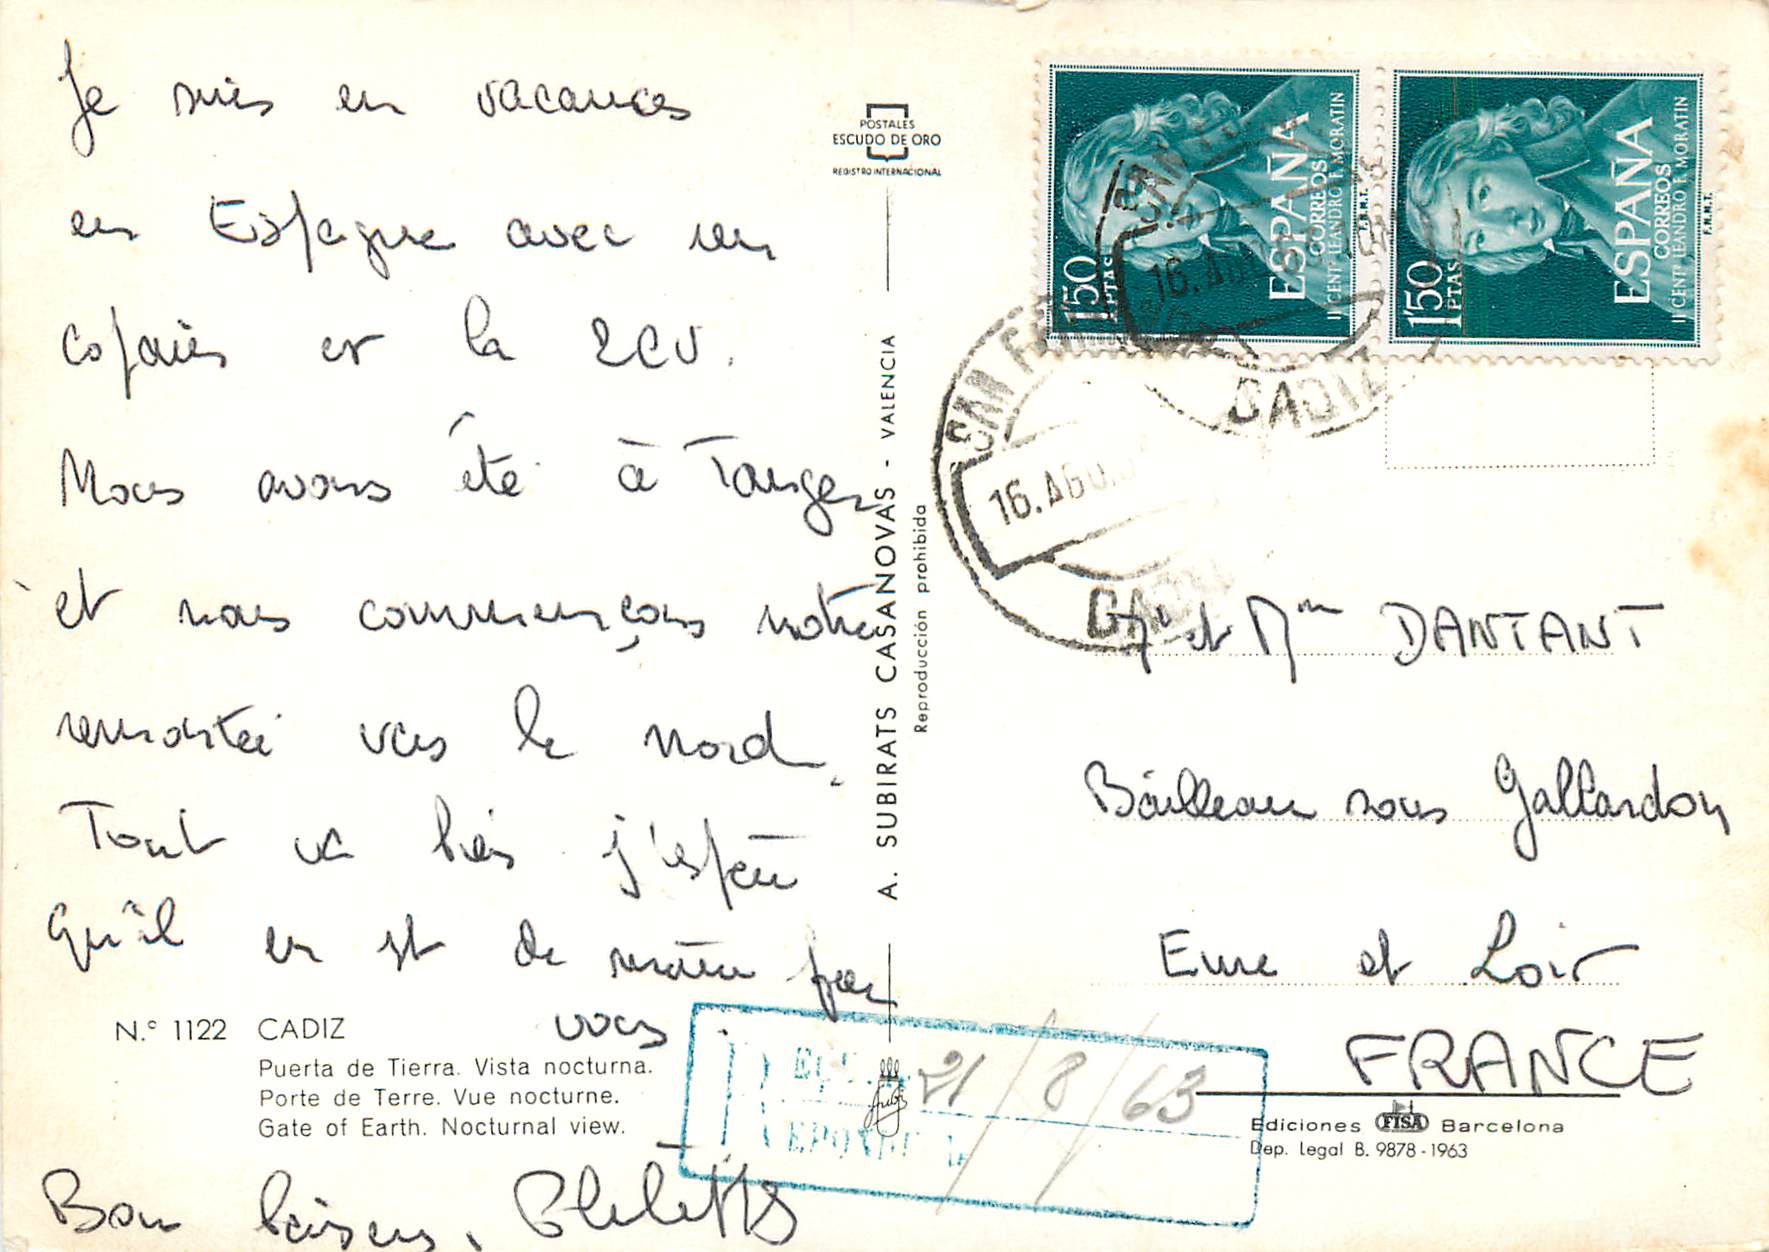 Je suis en vacances
en Espagne avec un
copain et la 2CV.
Nous avons été à Tanger
et nous commençons notre
remontée vers le nord.
Tout va bien j'espère
qu'il en est de même pour
vous
Bons baisers,
N.º 1122 CADIZ
Puerta de Tierra. Vista nocturna.
Porte de Terre. Vue nocturne.
Gate of Earth. Nocturnal view.
POSTALES
ESCUDO DE ORO
REGISTRO INTERNACIONAL
A. SUBIRATS CASANOVAS - VALENCIA
Reproducción prohibida
1'50 PTAS
ESPAÑA
CORREOS
II CENTº LEANDRO F. MORATIN
F.N.M.T.
1'50 PTAS
ESPAÑA
CORREOS
II CENTº LEANDRO F. MORATIN
F.N.M.T.
SAN
16.AGO
CADIZ
SAN FER
16.AGO
CADIZ
Mr et Mme DANTANT
Bailleau sous Gallardon
Eure et Loir
FRANCE
21/8/63
Ediciones FISA Barcelona
Dep. Legal B. 9878-1963